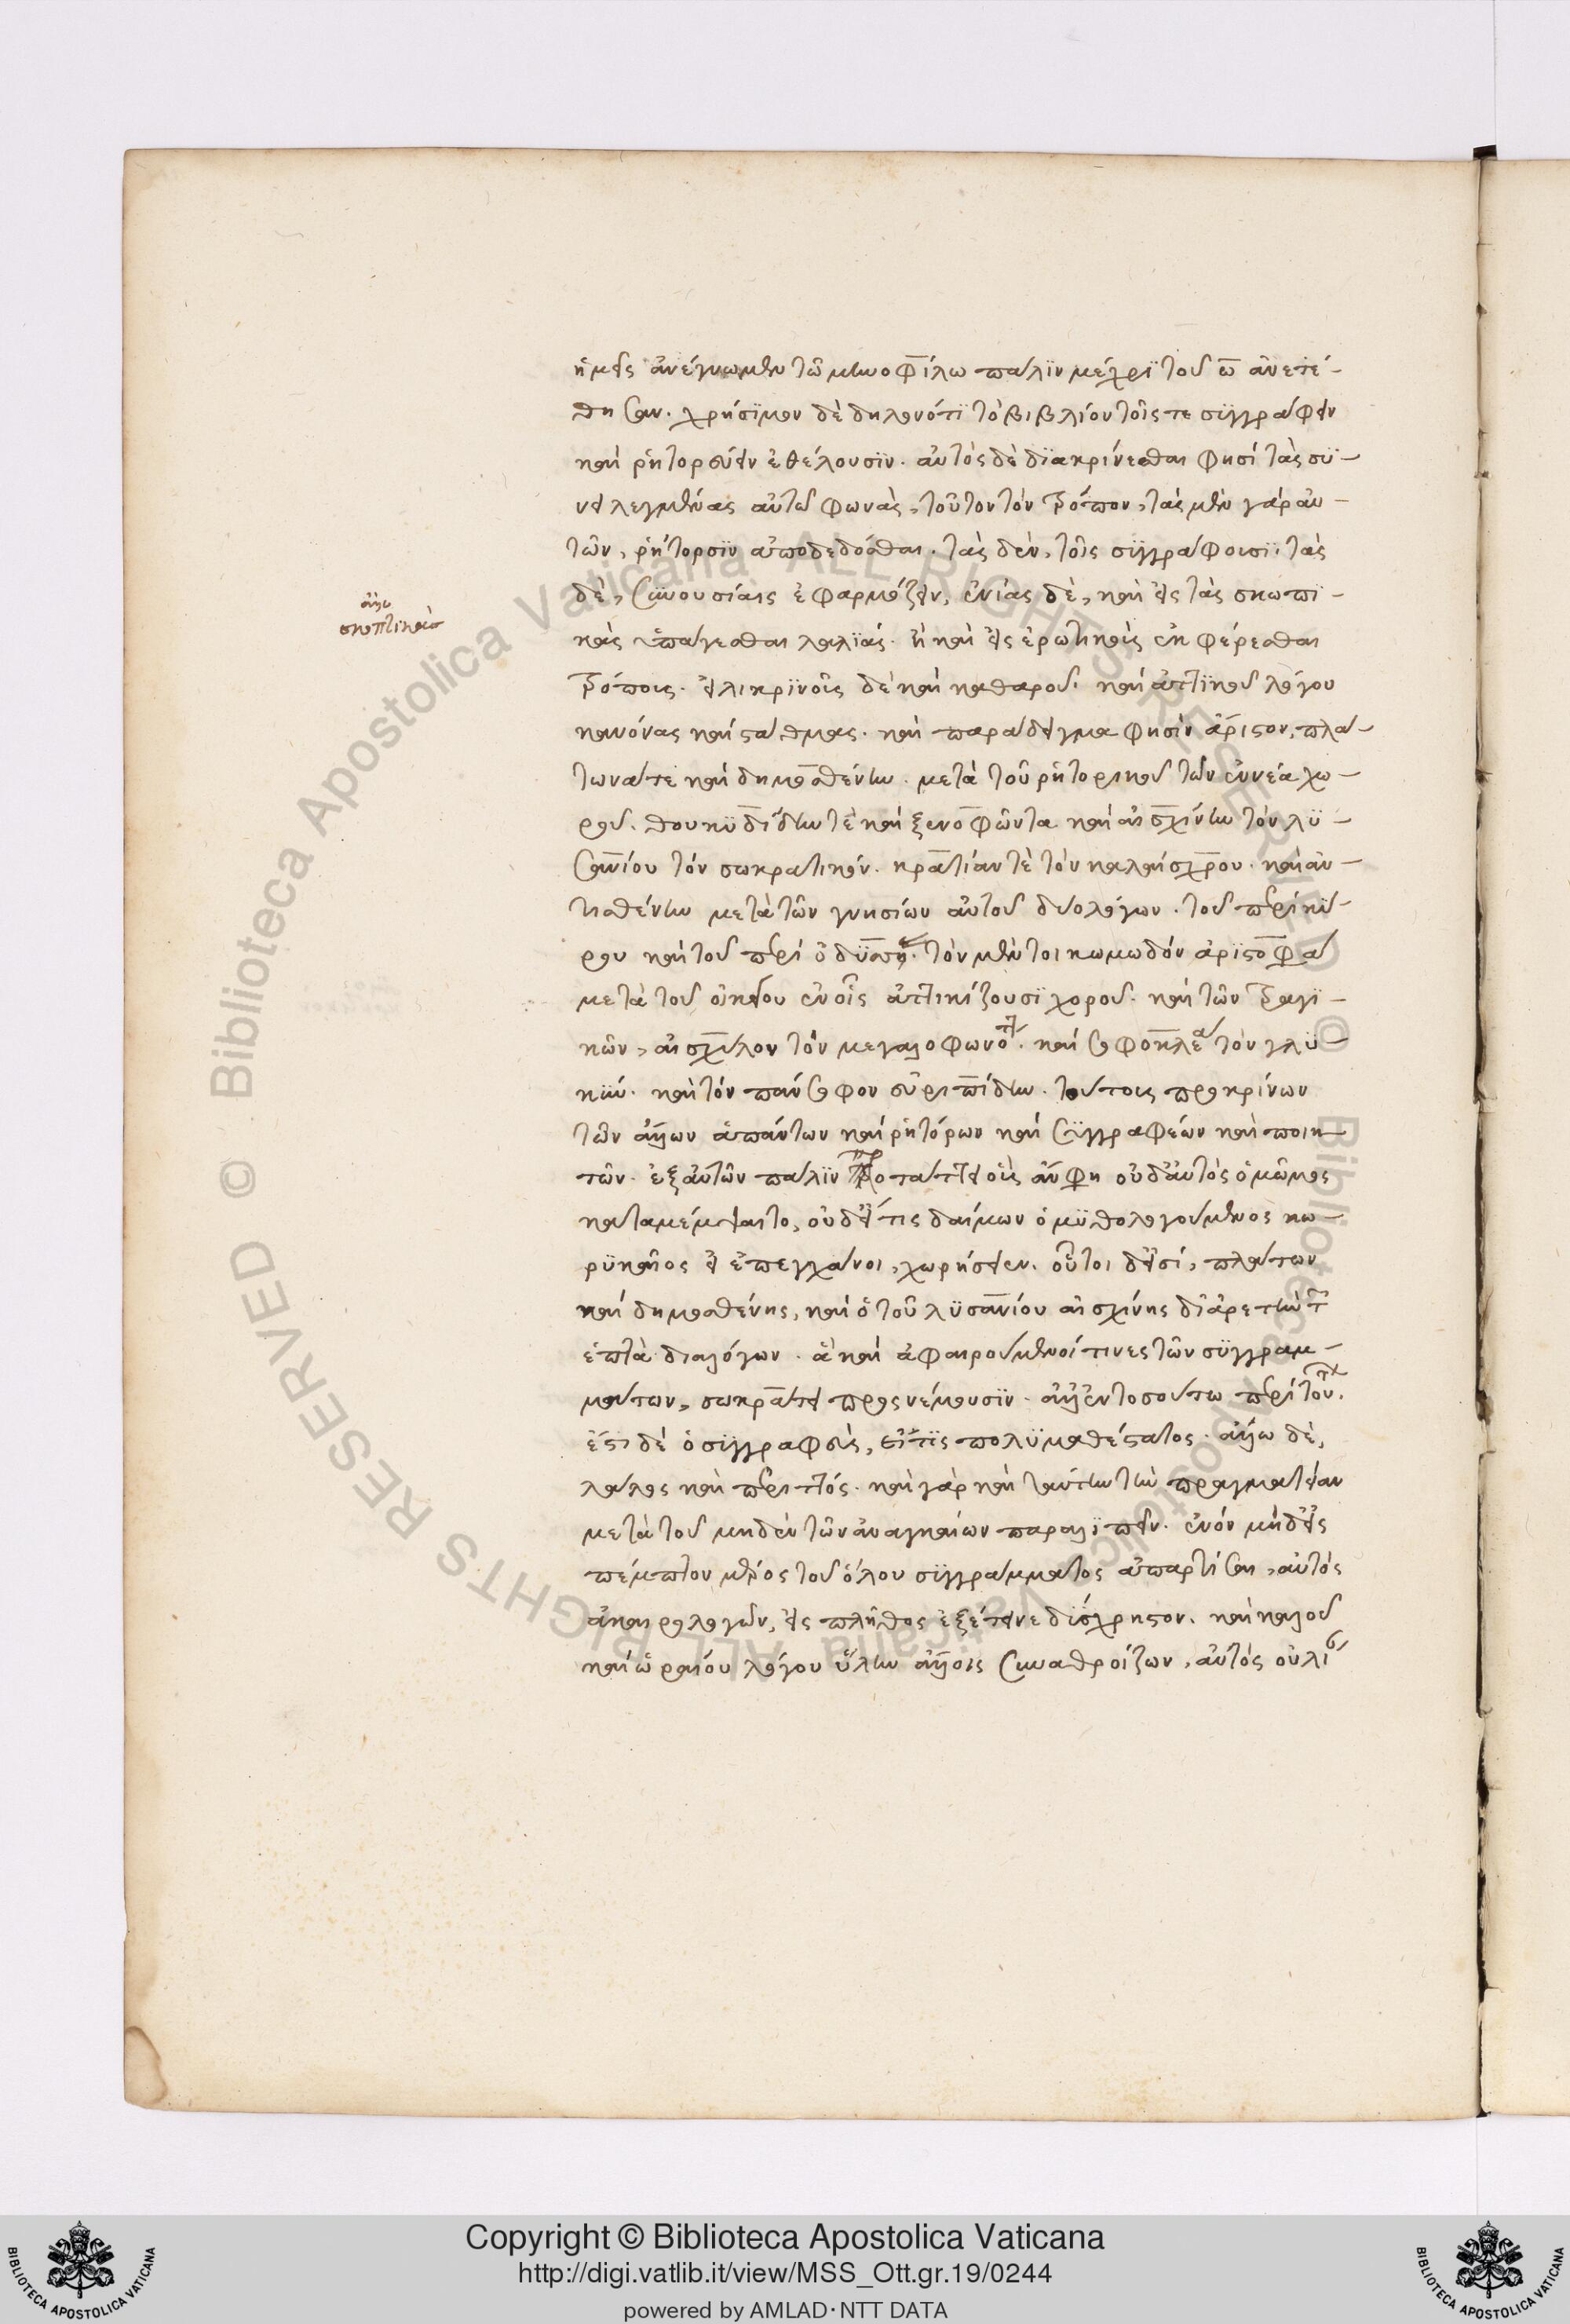 ἡμεῖς ἀνέγνωμεν τῶ μηνοφίλω πάλϊν μέχρϊ τοῦ ω̅ ἀνετέ-
θησαν. χρήσϊμον δὲ δηλονότϊ τὸ βιβλίον τοῖς τε συγγράφειν
καὶ ῥητορεύειν ἐθέλουσϊν. αὐτὸς δὲ δϊακρίνεσθαι φησί τὰς συ-
νειλεγμένας αὐτῶ φωνὰς, τοῦτον τὸν τρόπον, τὰς μὲν γάρ αὐ-
τῶν, ῥήτορσϊν ἀποδεδόσθαι. τὰς δὲν, τοῖς συγγράφουσϊ, τὰς
δὲ, συνουσίαις ἐφαρμόζειν, ἐνίας δὲ, καὶ εἰς τὰς σκωπϊ-
κὰς ὑπάγεσθαι λαλϊάς. ἢ καὶ εἰς ἐρωτικοὺς ἐκφέρεσθαι
τρόπους. εἰλικρϊνοῦς δὲ καὶ καθαροῦ. καὶ ἀττϊκοῦ λόγου
κανόνας καὶ στάθμας. καὶ παράδειγμα φησὶν ἄριστον, πλά-
τωνά τε καὶ δημοσθένην. μετὰ τοῦ ῥητορικοῦ τῶν ἐννέα χο-
ροῦ. θουκυδίδην τὲ καὶ ξενοφῶντα καὶ αἰσχίνην τὸν λυ-
σανίου τόν σωκρατικόν. κριτίαν τὲ τὸν καλαίσχρου. καὶ ἀν-
τισθένην μετὰ τῶν γνησίων αὐτοῦ δύο λόγων. τοῦ περὶ κύ-
ρου καὶ τοῦ περὶ ὀδυσσείας. τὸν μέν τοι κωμωδόν ἀρϊστοφά
μετὰ τοῦ οἰκείου ἐν οἷς ἀττικίζουσϊ χοροῦ. καὶ τῶν τραγϊ-
κῶν, αἰσχύλον τὸν μεγαλοφωνότ. καὶ σοφοκλέα τὸν γλυ-
κύν. καὶ τὸν πάνσοφον εὐριπίδην. τούτους προκρίνων
τῶν ἄλλων ἁπάντων καὶ ῥητόρων καὶ συγγραφέων καὶ ποιη-
τῶν. ἐξ αὐτῶν πάλϊν προτάττει οἷς ἄν φη οὐδ' αὐτὸς ὁ μῶμος
καταμέμψαιτο, οὐδ' εἴ τις δαίμων ὁ μυθολογούμενος κω-
ρυκαῖος εἰ ἐπεγχάνοι, χωρήσειεν. οὗτοι δ' εἰσί, πλάτων
καὶ δημοσθένης, καὶ ὁ τοῦ λυσανίου αἰσχίνης δι' ἀρετὴν τ
ἑπτὰ διαλόγων. ἃ καὶ ἀφαιρούμενοί τινες τῶν συγγραμ-
μάτων, σωκράτει προσνέμουσϊν. ἀλλ' ἐν τοσούτω περὶ τούτ.
ἔστι δὲ ὁ συγγραφεὺς, εἴ τϊς πολυμαθέστατος. ἄλλω δὲ,
λάλος καὶ περιττός. καὶ γὰρ καὶ ταύτην τὴν πραγματείαν
μετὰ τοῦ μηδὲν τῶν ἀναγκαίων παραλϊπεῖν. ἐνόν μὴδ' εἰς
πέμπτον μέρος τοῦ ὅλου συγγράμματος ἀπαρτίσαι, αὐτὸς
ἀκαιρολογῶν, εἰς πλῆθος ἐξέτεινε δύσχρηστον. καὶ καλοῦ
καὶ ὡραίου λόγου ὕλην ἄλλοις συναθροίζων, αὐτὸς οὐ λί
ἄλλω
σκοπτικὰς
Copyright © Biblioteca Apostolica Vaticana
http://digi.vatlib.it/view/MSS_Ott.gr.19/0244
powered by AMLAD·NTT DATA
BIBLIOTECA APOSTOLICA VATICANA
BIBLIOTECA APOSTOLICA VATICANA
© Biblioteca Apostolica Vaticana ALL RIGHTS RESERVED
© Biblioteca Apostolica Vaticana ALL RIGHTS RESERVED